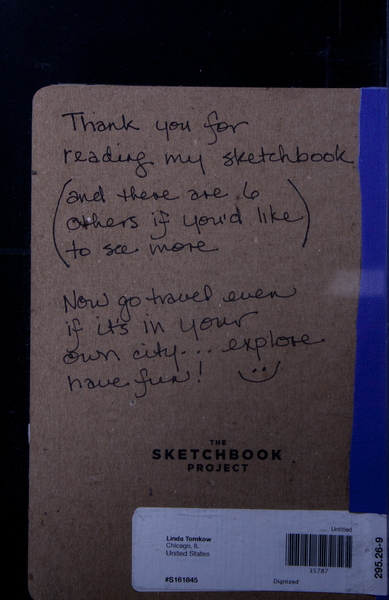 Thank you for
reading my sketchbook
(and there are 6
others if you'd like
to see more)
Now go travel even
if it's in your
own city... explore
have fun!
THE
SKETCHBOOK
PROJECT
Untitled
Linda Tomkow
Chicago, IL
United States
15787
#S161845
Digitized
295.26-9